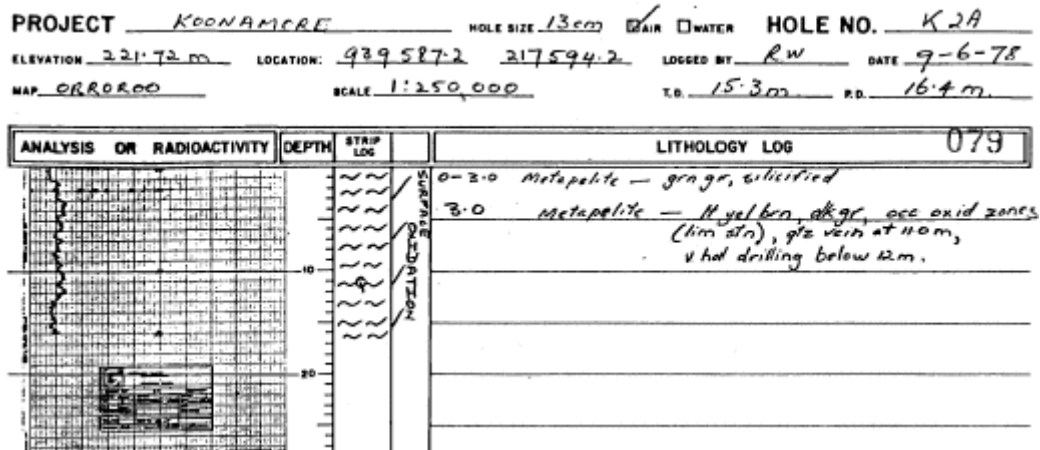 PROJECT KOONAMORE HOLE SIZE 13cm AIR WATER HOLE NO. K 2A
ELEVATION 221.72 m LOCATION: 939 587.2 217594.2 LOGGED BY RW DATE 9-6-78
MAP ORROROO SCALE 1:250,000 T.D. 15.3m P.D. 16.4 m.
079
ANALYSIS OR RADIOACTIVITY DEPTH STRIP LOG LITHOLOGY LOG
0-3.0 Metapelite — grn gr, silicified
3.0 Metapelite — lt yel brn, dk gr, occ oxid zones
(lim stn), qtz vein at 11.0m,
v hol drilling below 12m.
SURFACE OXIDATION
10
Q
20